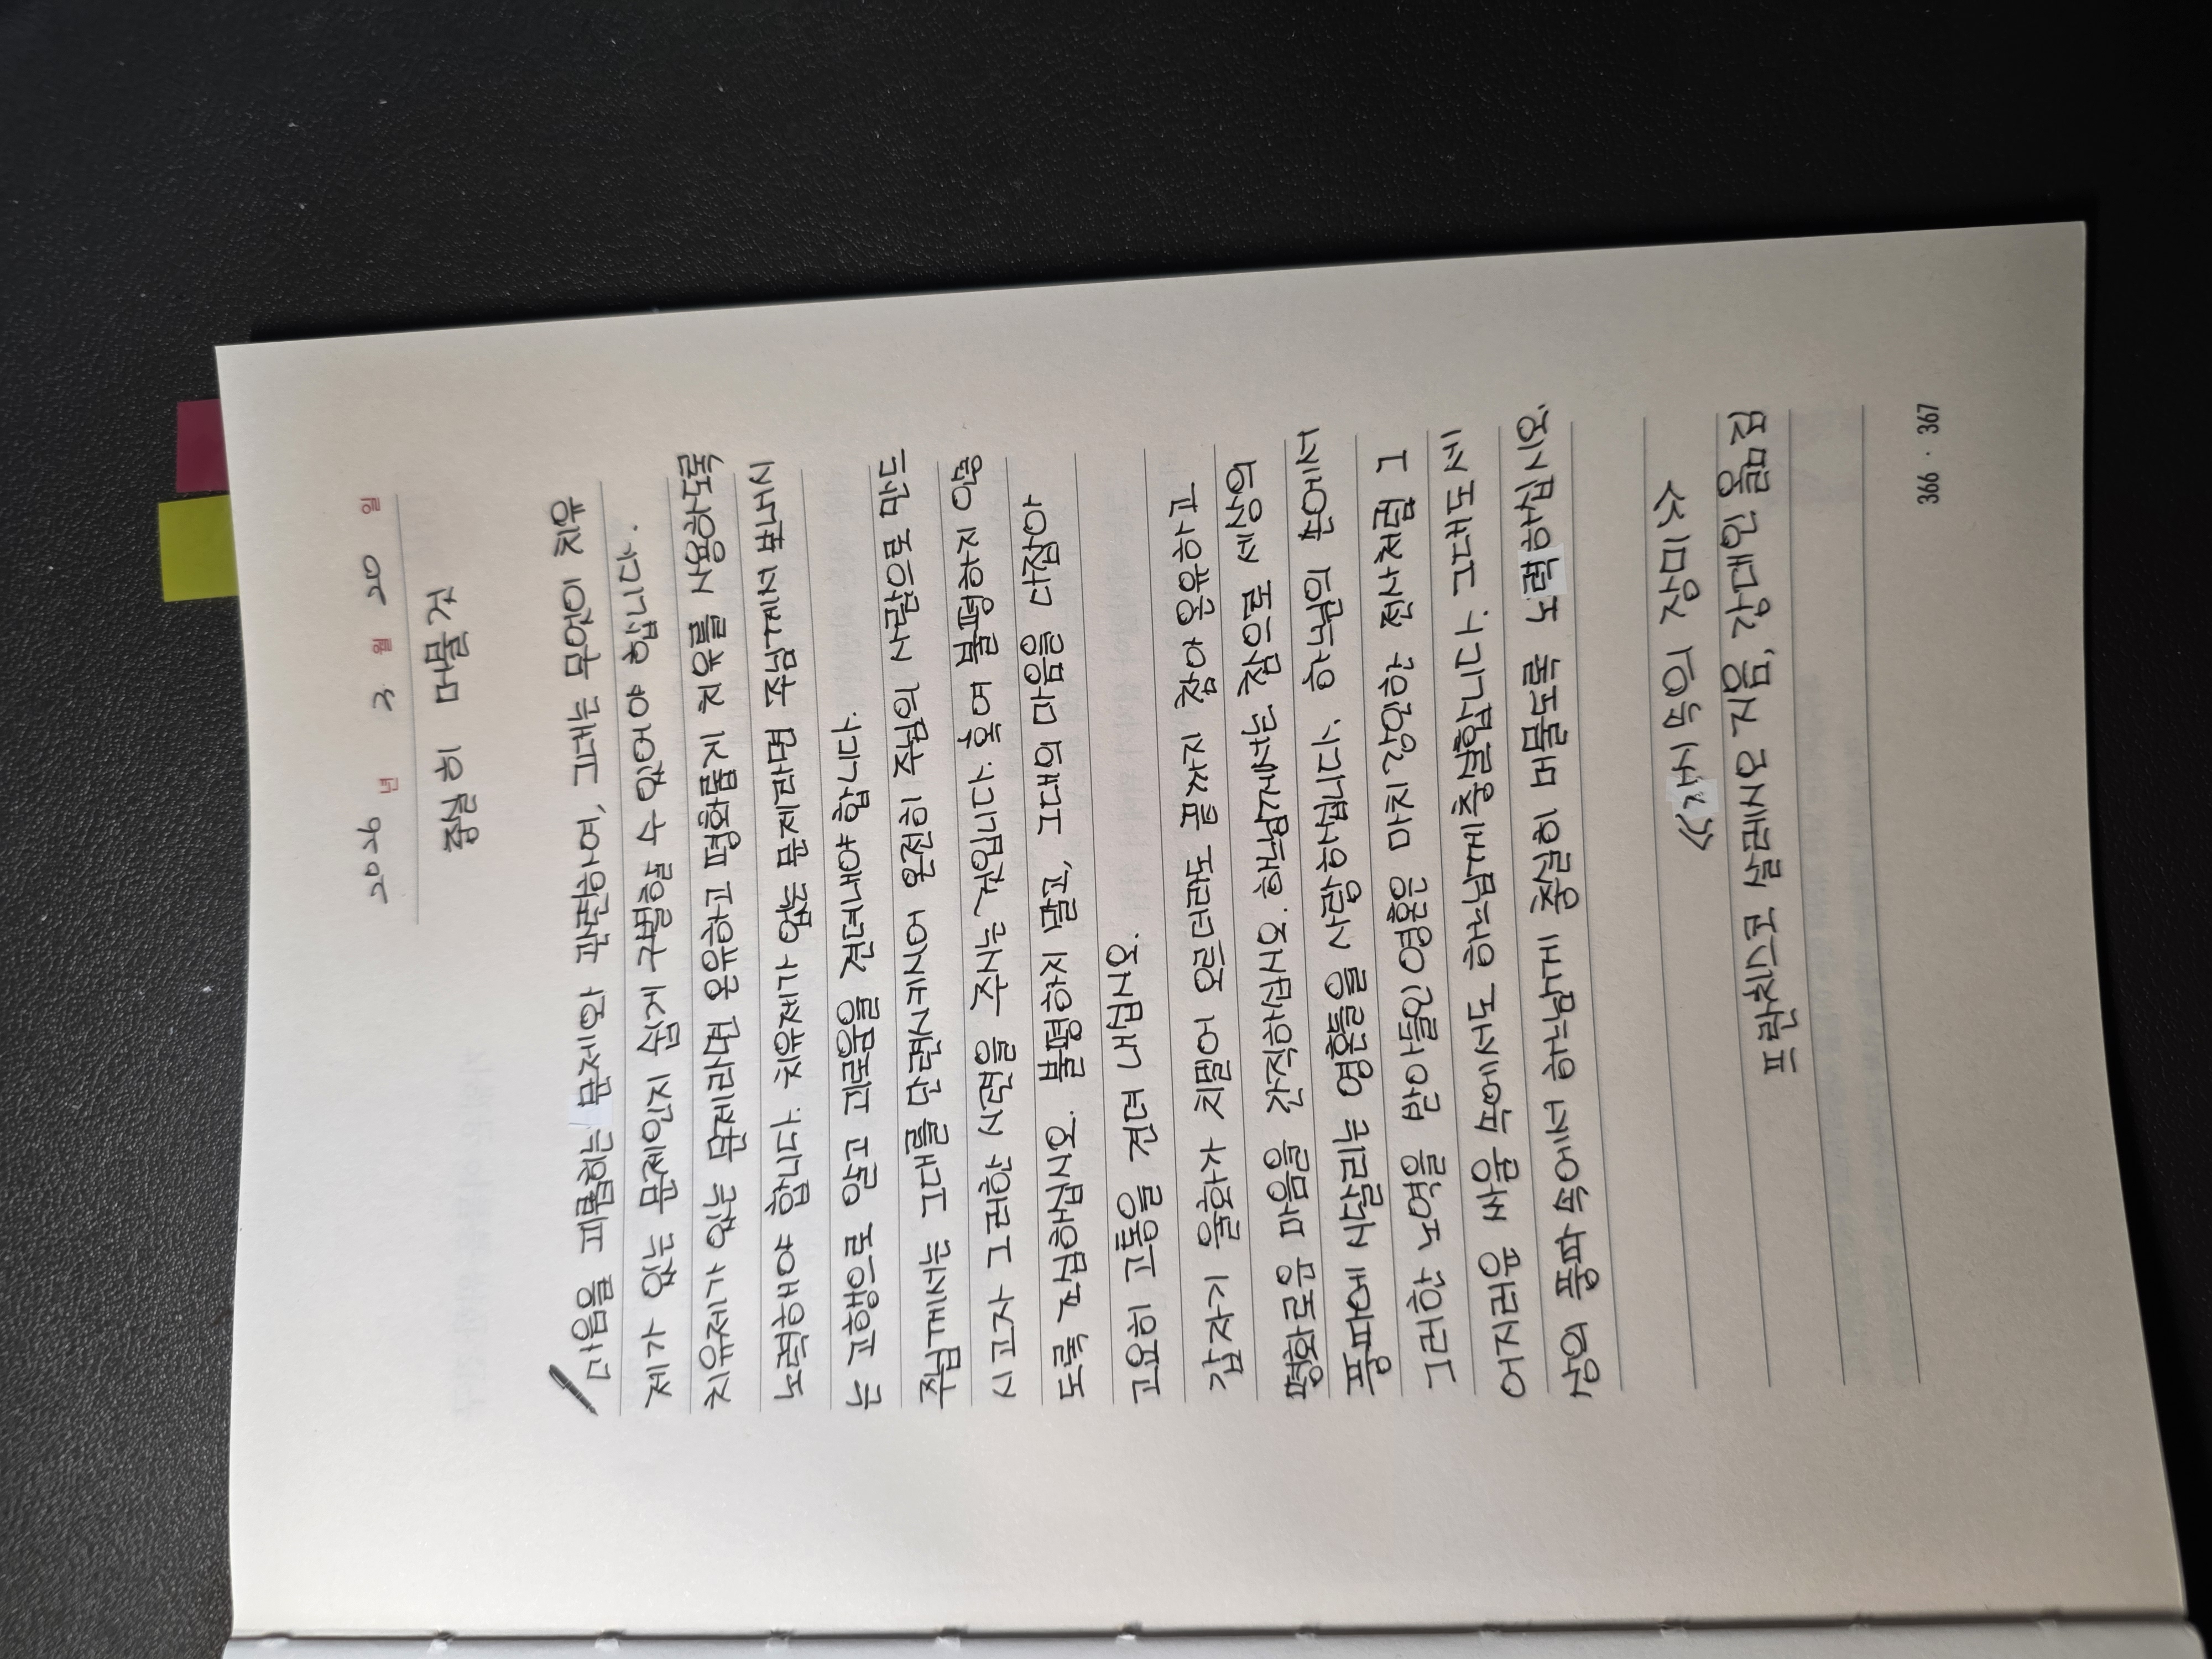 2026 년 3 월 20 일
충실히 머물 것
마음을 괴롭히는 문제와 관련하여, 그대는 무엇이 치유
제가 있는 문제인지 쉽게 구별할 수 있어야 합니다.
치유제가 있는 문제라면 온유하고 평화롭게 치유를 사용하도록
노력해야 합니다. 치유제가 없는 문제라면 주님께서 보내시
는 고행으로 알고 괴로움을 견뎌내야 합니다.
주님께서는 그대를 단련시키시어 온전히 주님의 사람으로 만드
시고자 그러한 시련을 주시는 것입니다. 혹여 불평하지 않
도록 조심하십시오. 불평하지 말고, 그대의 마음을 다잡아
고요히 고통을 견뎌 내십시오.
갑자기 울화가 치밀어 오르더라도 끝까지 참아 온유하고
평화로운 마음을 간직하십시오. 하느님께서는 참으로 세상의
풍파에 시달리는 영혼들을 사랑하십니다. 하느님의 손에서
그러한 노역을 받아들인 영혼은 마치 강인한 전사처럼 그
어지러운 싸움 속에서도 하느님께 충실합니다. 그대도 써
상의 풍파 속에서 하느님께 충실히 머물도록 노력하십시오.
<<사속의 정미>>
프란치스코 살레시오 지음, 강대인 옮김
366 · 367